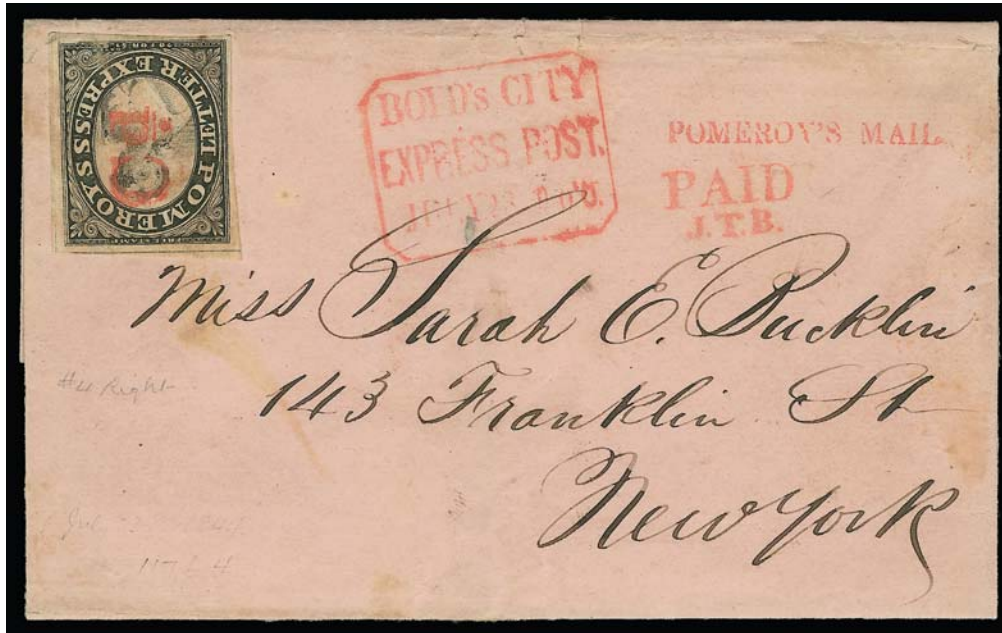 POMEROYS LETTER EXPRESS
FREE STAMP
Cd
BOYD's CITY
EXPRESS POST.
JULY 23
POMEROY'S MAIL
PAID
J.T.B.
Miss Sarah E. Bucklin
143 Franklin St
New York
#4 Right
117L4